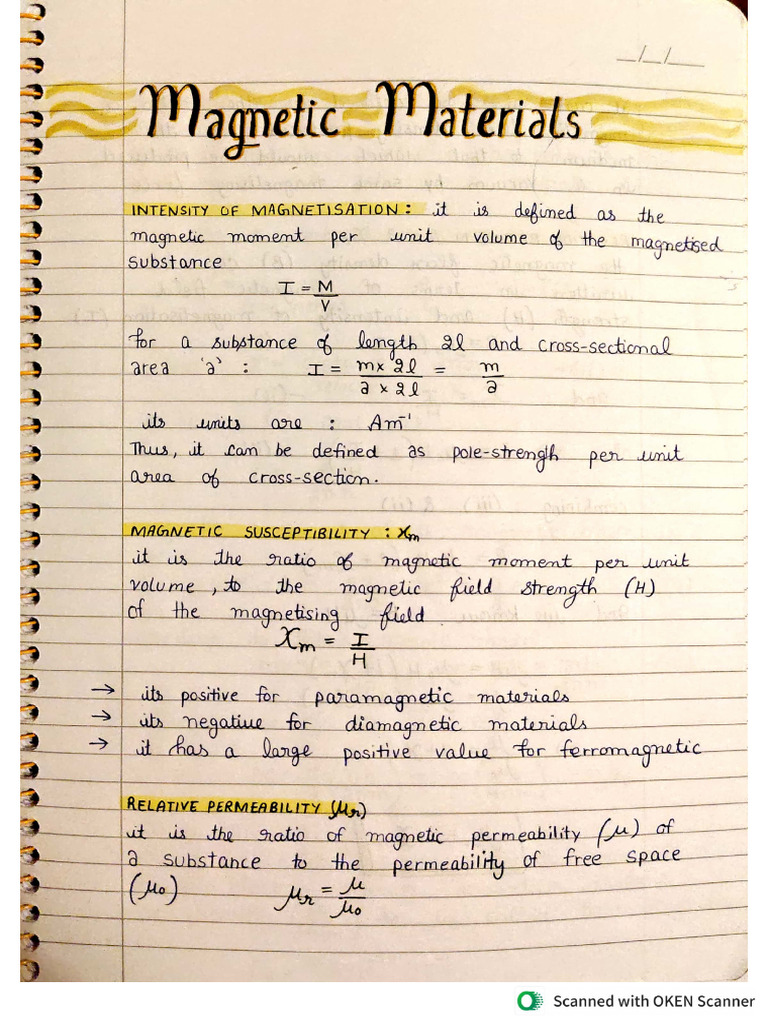 __/__/____
Magnetic Materials
INTENSITY OF MAGNETISATION: it is defined as the
magnetic moment per unit volume of the magnetised
substance
I = M/V
for a substance of length 2l and cross-sectional
area 'a' : I = m x 2l / a x 2l = m/a
its units are : Am⁻¹
Thus, it can be defined as pole-strength per unit
area of cross-section.
MAGNETIC SUSCEPTIBILITY : χm
it is the ratio of magnetic moment per unit
volume, to the magnetic field strength (H)
of the magnetising field.
χm = I/H
→ its positive for paramagnetic materials
→ its negative for diamagnetic materials
→ it has a large positive value for ferromagnetic
RELATIVE PERMEABILITY (μr)
it is the ratio of magnetic permeability (μ) of
a substance to the permeability of free space
(μo) μr = μ/μo
Scanned with OKEN Scanner